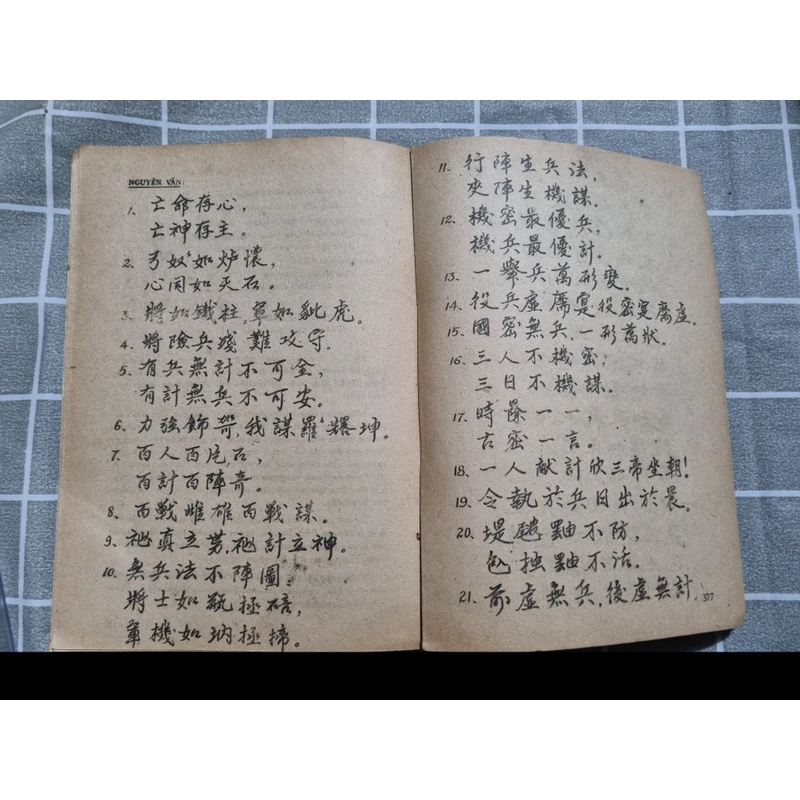 NGUYÊN VĂN:
1. 亡命存心,
亡神存主。
2. 弓奴如炉懷,
心閑如天石。
3. 將如鐵柱, 軍如豼虎。
4. 將險兵殘難攻守。
5. 有兵無計不可全,
有計無兵不可安。
6. 力強飾, 我謀羅坤。
7. 百人百
百計百陣奇。
8. 百戰雌雄百戰謀。
9. 祕真立 祕計立神。
10. 無兵法不陣圖:
將士如 極
軍機如 極
11. 行陣生兵法,
夾陣生機謀。
12. 機密最優兵,
機兵最優計。
13. 一舉兵萬形變。
14. 役兵虛 役密
15. 國密無兵, 一形萬狀。
16. 三人不機密,
三日不機謀。
17. 時 一一,
古密一言。
18. 一人献計欣三帝坐朝!
19. 令執於兵日出於晨。
20. 堤 不防,
不活。
21. 前虛無兵, 後虛無計.
327